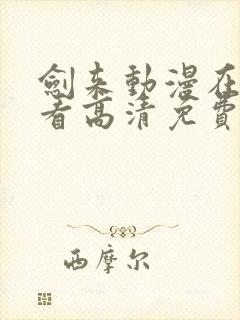 劍来動漫在
看高清免費
西摩尔